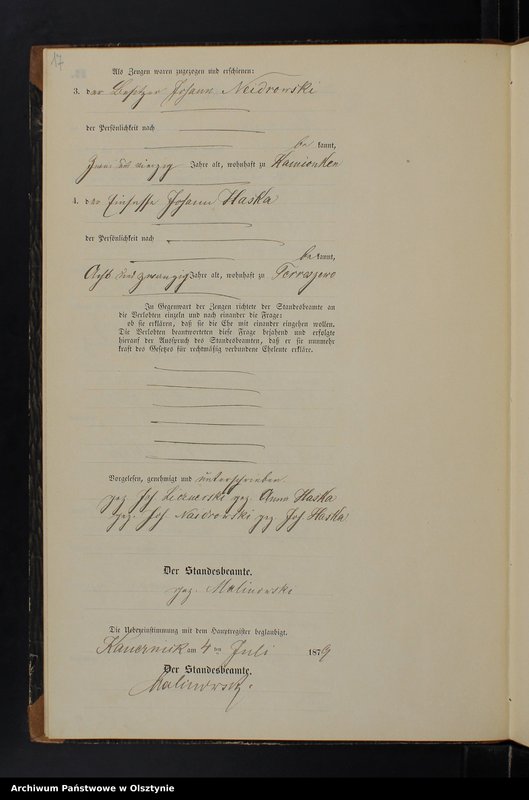 17
Als Zeugen waren zugezogen und erschienen:
3. der Besitzer Johann Neidrowski
der Persönlichkeit nach
be kannt,
zwei und vierzig Jahre alt, wohnhaft zu Kamionken
4. der Einsasse Johann Haska
der Persönlichkeit nach
be kannt,
Acht und zwanzig Jahre alt, wohnhaft zu Terreszewo
In Gegenwart der Zeugen richtete der Standesbeamte an
die Verlobten einzeln und nach einander die Frage:
ob sie erklären, daß sie die Ehe mit einander eingehen wollen.
Die Verlobten beantworteten diese Frage bejahend und erfolgte
hierauf der Ausspruch des Standesbeamten, daß er sie nunmehr
kraft des Gesetzes für rechtmäßig verbundene Eheleute erkläre.
Vorgelesen, genehmigt und unterschrieben.
gez. Joh gez. Anna Haska
gez. Joh Naidrowski gez Joh Haska
Der Standesbeamte.
gez. Malinowski
Die Uebereinstimmung mit dem Hauptregister beglaubigt.
Kauernik am 4 ten Juli 1879
Der Standesbeamte.
Malinowski.
Archiwum Państwowe w Olsztynie